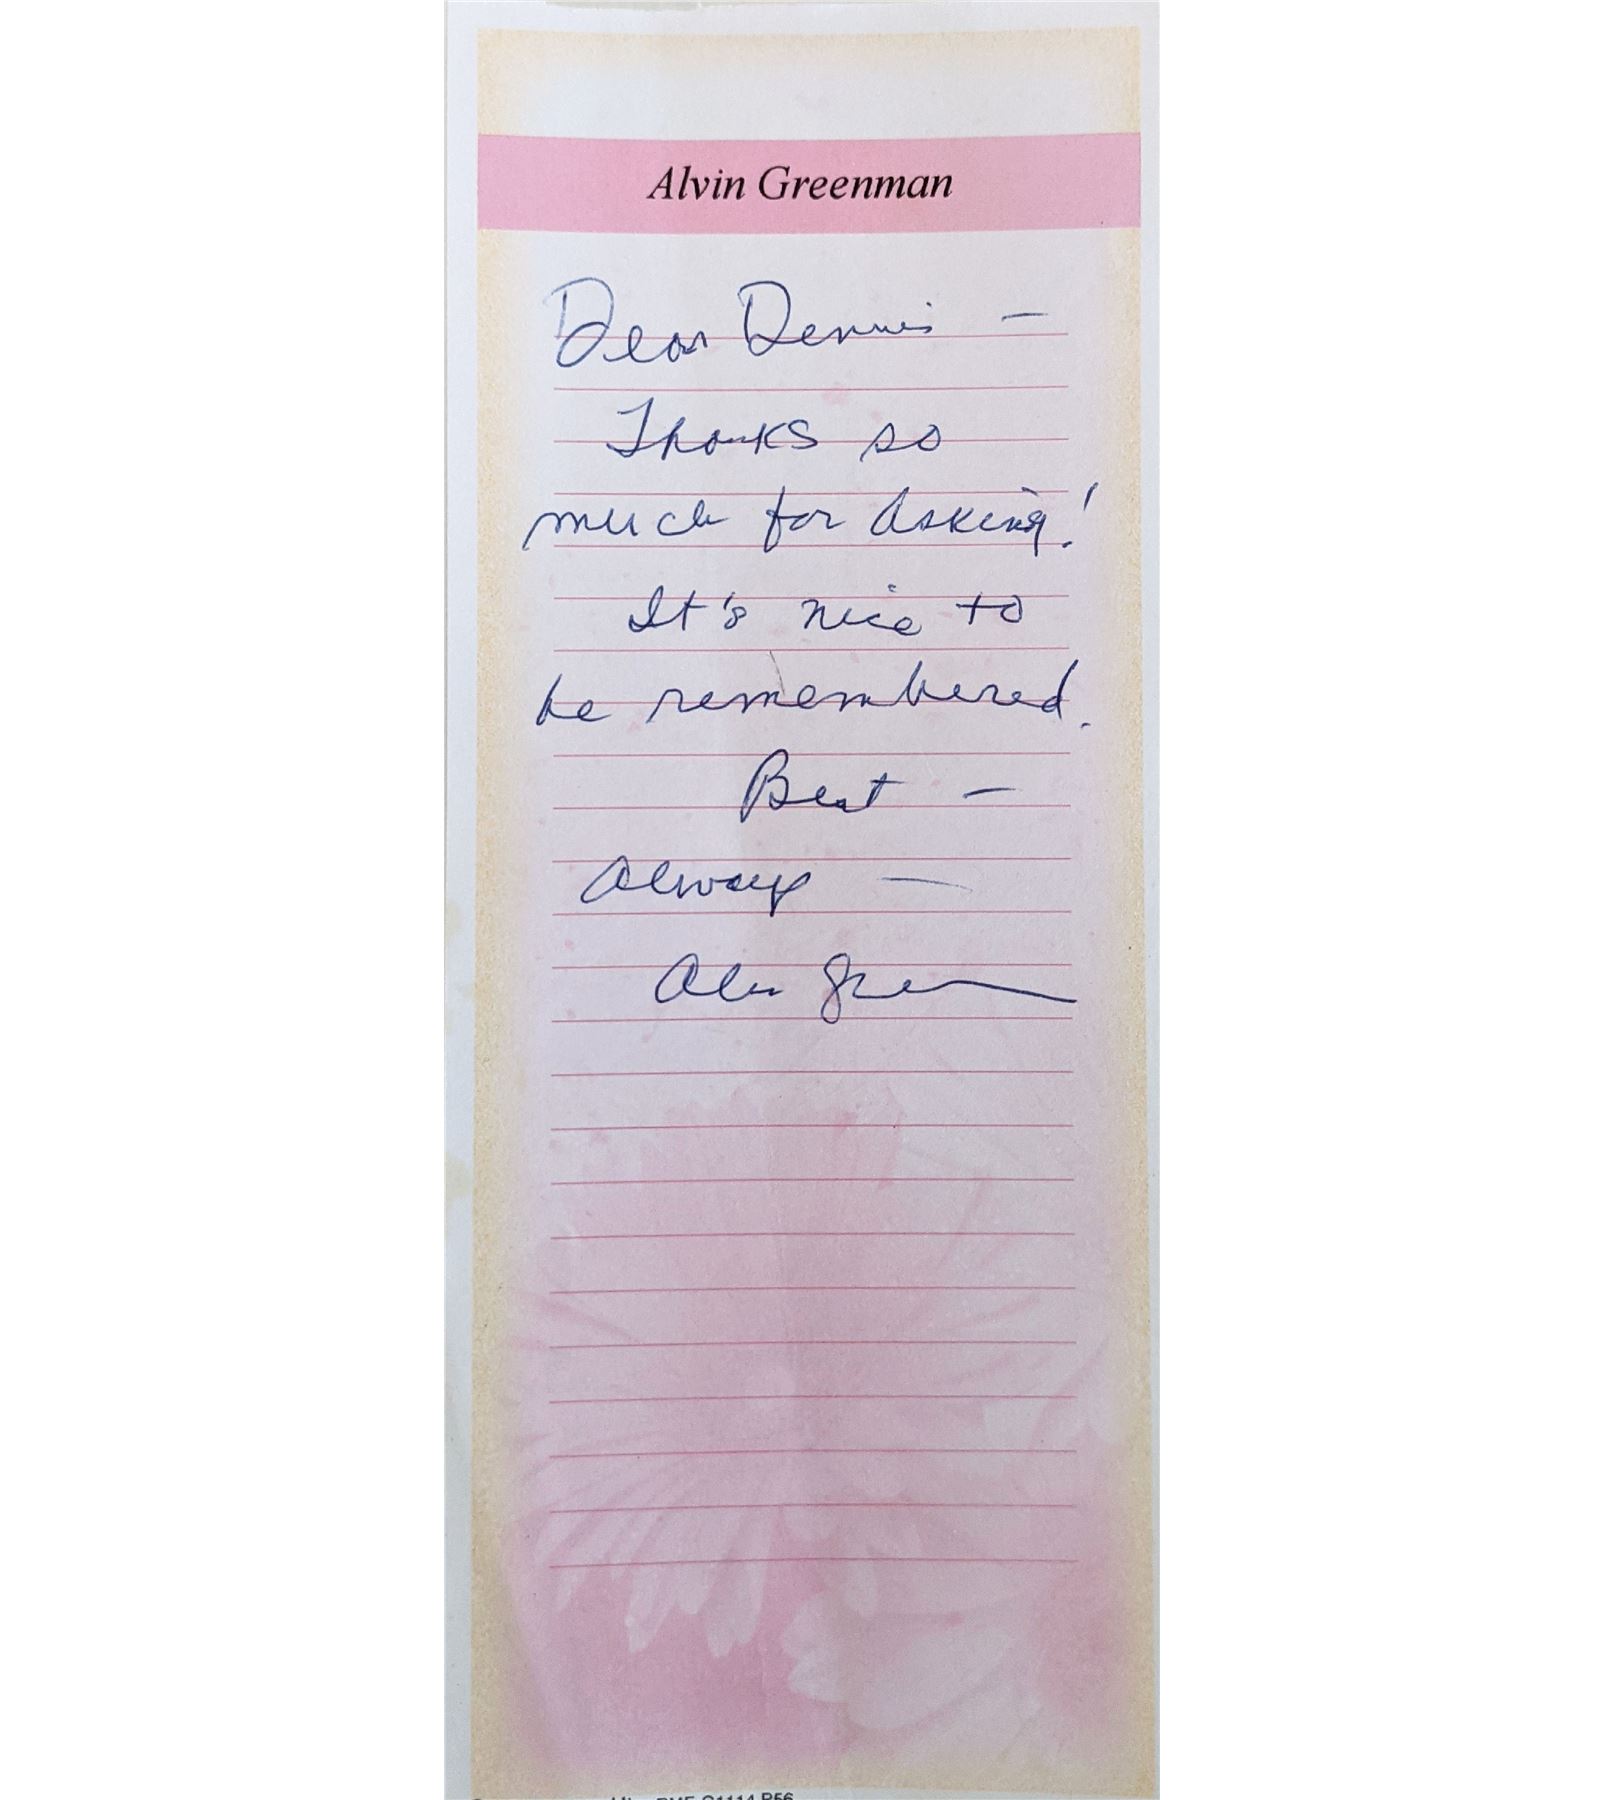 Alvin Greenman
Dear Dennis –
Thanks so
much for asking!
It's nice to
be remembered.
Best –
Always –